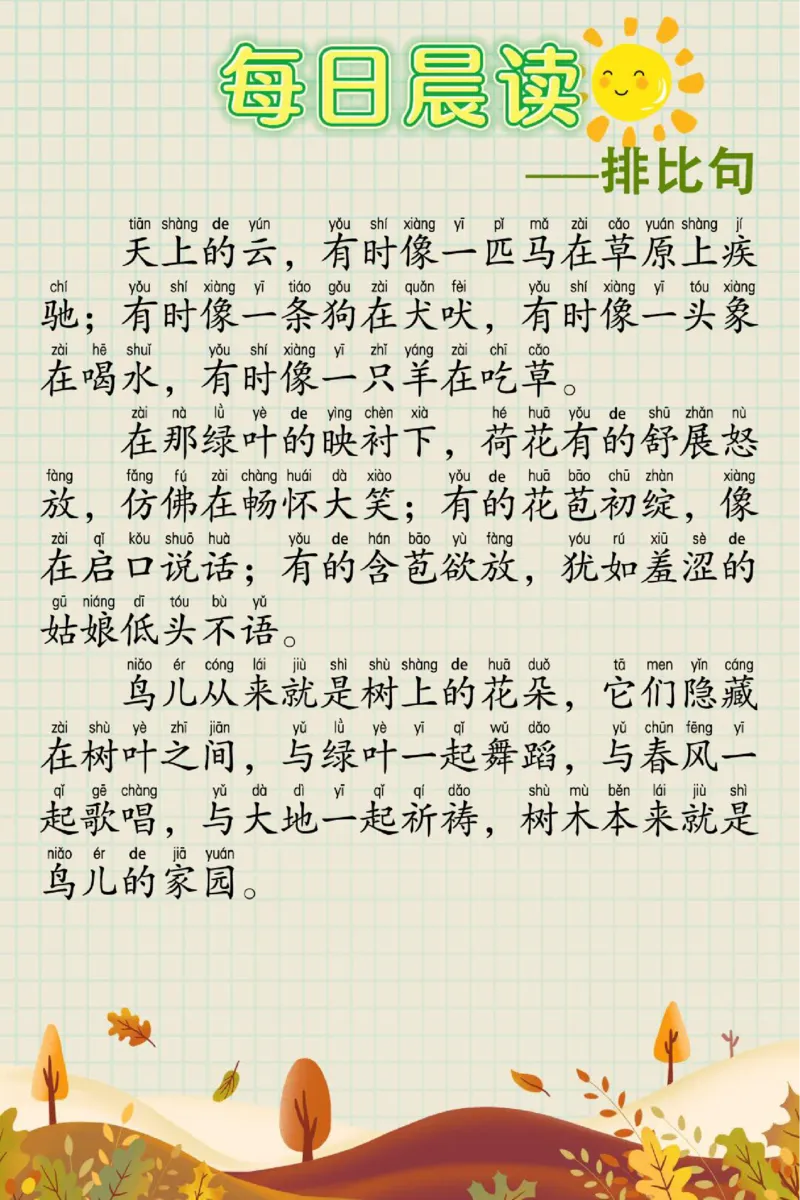 每日晨读
——排比句
tiān shàng de yún yǒu shí xiàng yī pǐ mǎ zài cǎo yuán shàng jí
天上的云，有时像一匹马在草原上疾
chí yǒu shí xiàng yī tiáo gǒu zài quǎn fèi yǒu shí xiàng yī tóu xiàng
驰；有时像一条狗在犬吠，有时像一头象
zài hē shuǐ yǒu shí xiàng yī zhī yáng zài chī cǎo
在喝水，有时像一只羊在吃草。
zài nà lǜ yè de yìng chèn xià hé huā yǒu de shū zhǎn nù
在那绿叶的映衬下，荷花有的舒展怒
fàng fǎng fú zài chàng huái dà xiào yǒu de huā bāo chū zhàn xiàng
放，仿佛在畅怀大笑；有的花苞初绽，像
zài qǐ kǒu shuō huà yǒu de hán bāo yù fàng yóu rú xiū sè de
在启口说话；有的含苞欲放，犹如羞涩的
gū niáng dī tóu bù yǔ
姑娘低头不语。
niǎo ér cóng lái jiù shì shù shàng de huā duǒ tā men yǐn cáng
鸟儿从来就是树上的花朵，它们隐藏
zài shù yè zhī jiān yǔ lǜ yè yī qǐ wǔ dǎo yǔ chūn fēng yī
在树叶之间，与绿叶一起舞蹈，与春风一
qǐ gē chàng yǔ dà dì yī qǐ qí dǎo shù mù běn lái jiù shì
起歌唱，与大地一起祈祷，树木本来就是
niǎo ér de jiā yuán
鸟儿的家园。